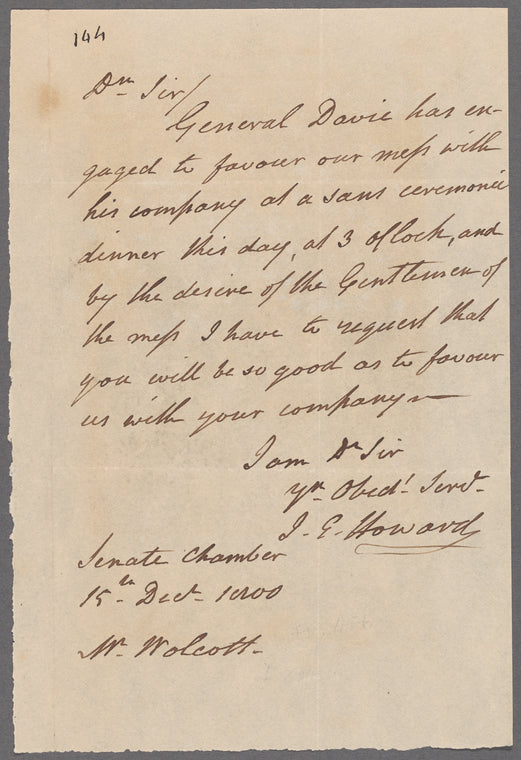 144
Dr. Sir/
General Davie has en-
gaged to favour our mess with
his company at a sans ceremonie
dinner this day, at 3 oClock, and
by the desire of the Gentlemen of
the mess I have to request that
you will be so good as to favour
us with your company—
I am Dr Sir
Yr. Obedt. Servt.
J. E. Howard
Senate Chamber
15th Decr. 1800
Mr. Wolcott.